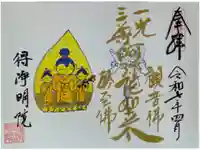 奉拝
令和七年四月
一光
三尊阿弥陀如来
観音佛
勢至佛
得浄明院